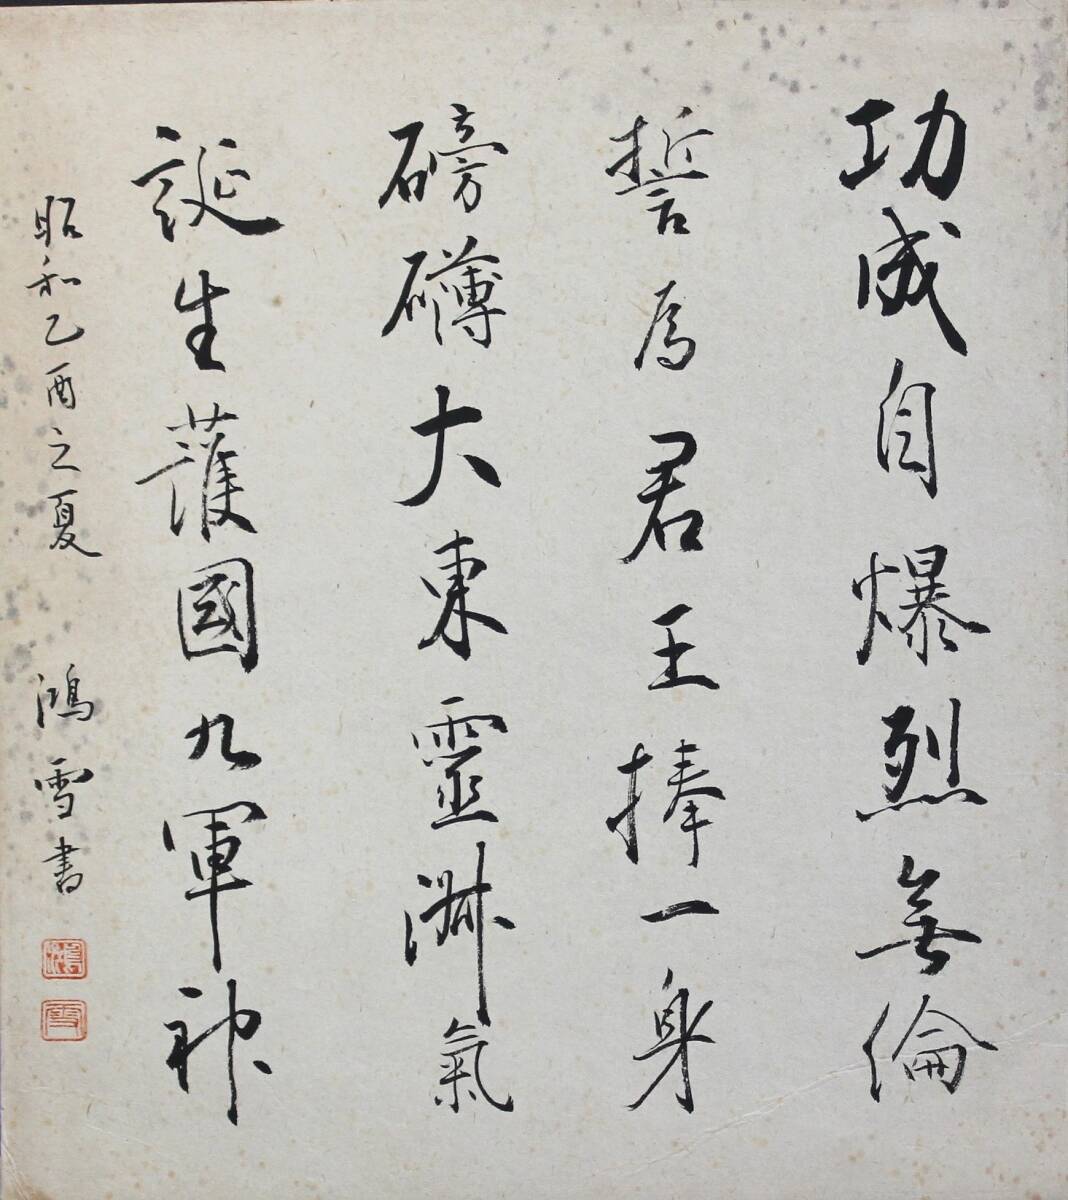 功成自爆烈無倫
誓為君王捧一身
磅礴大東靈淑氣
誕生護國九軍神
昭和乙酉之夏 鴻雪書
鴻
雪